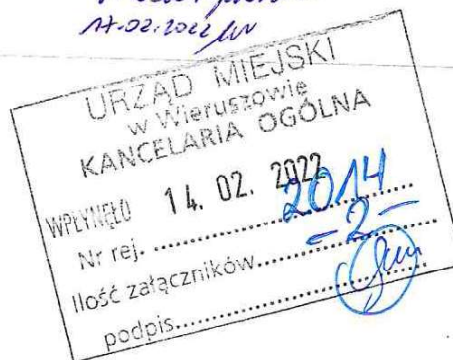 17.02.2022
URZĄD MIEJSKI
w Wieruszowie
KANCELARIA OGÓLNA
WPŁYNĘŁO 14. 02. 2022
Nr rej. .......... 2014
Ilość załączników.......... - 2 -
podpis..........